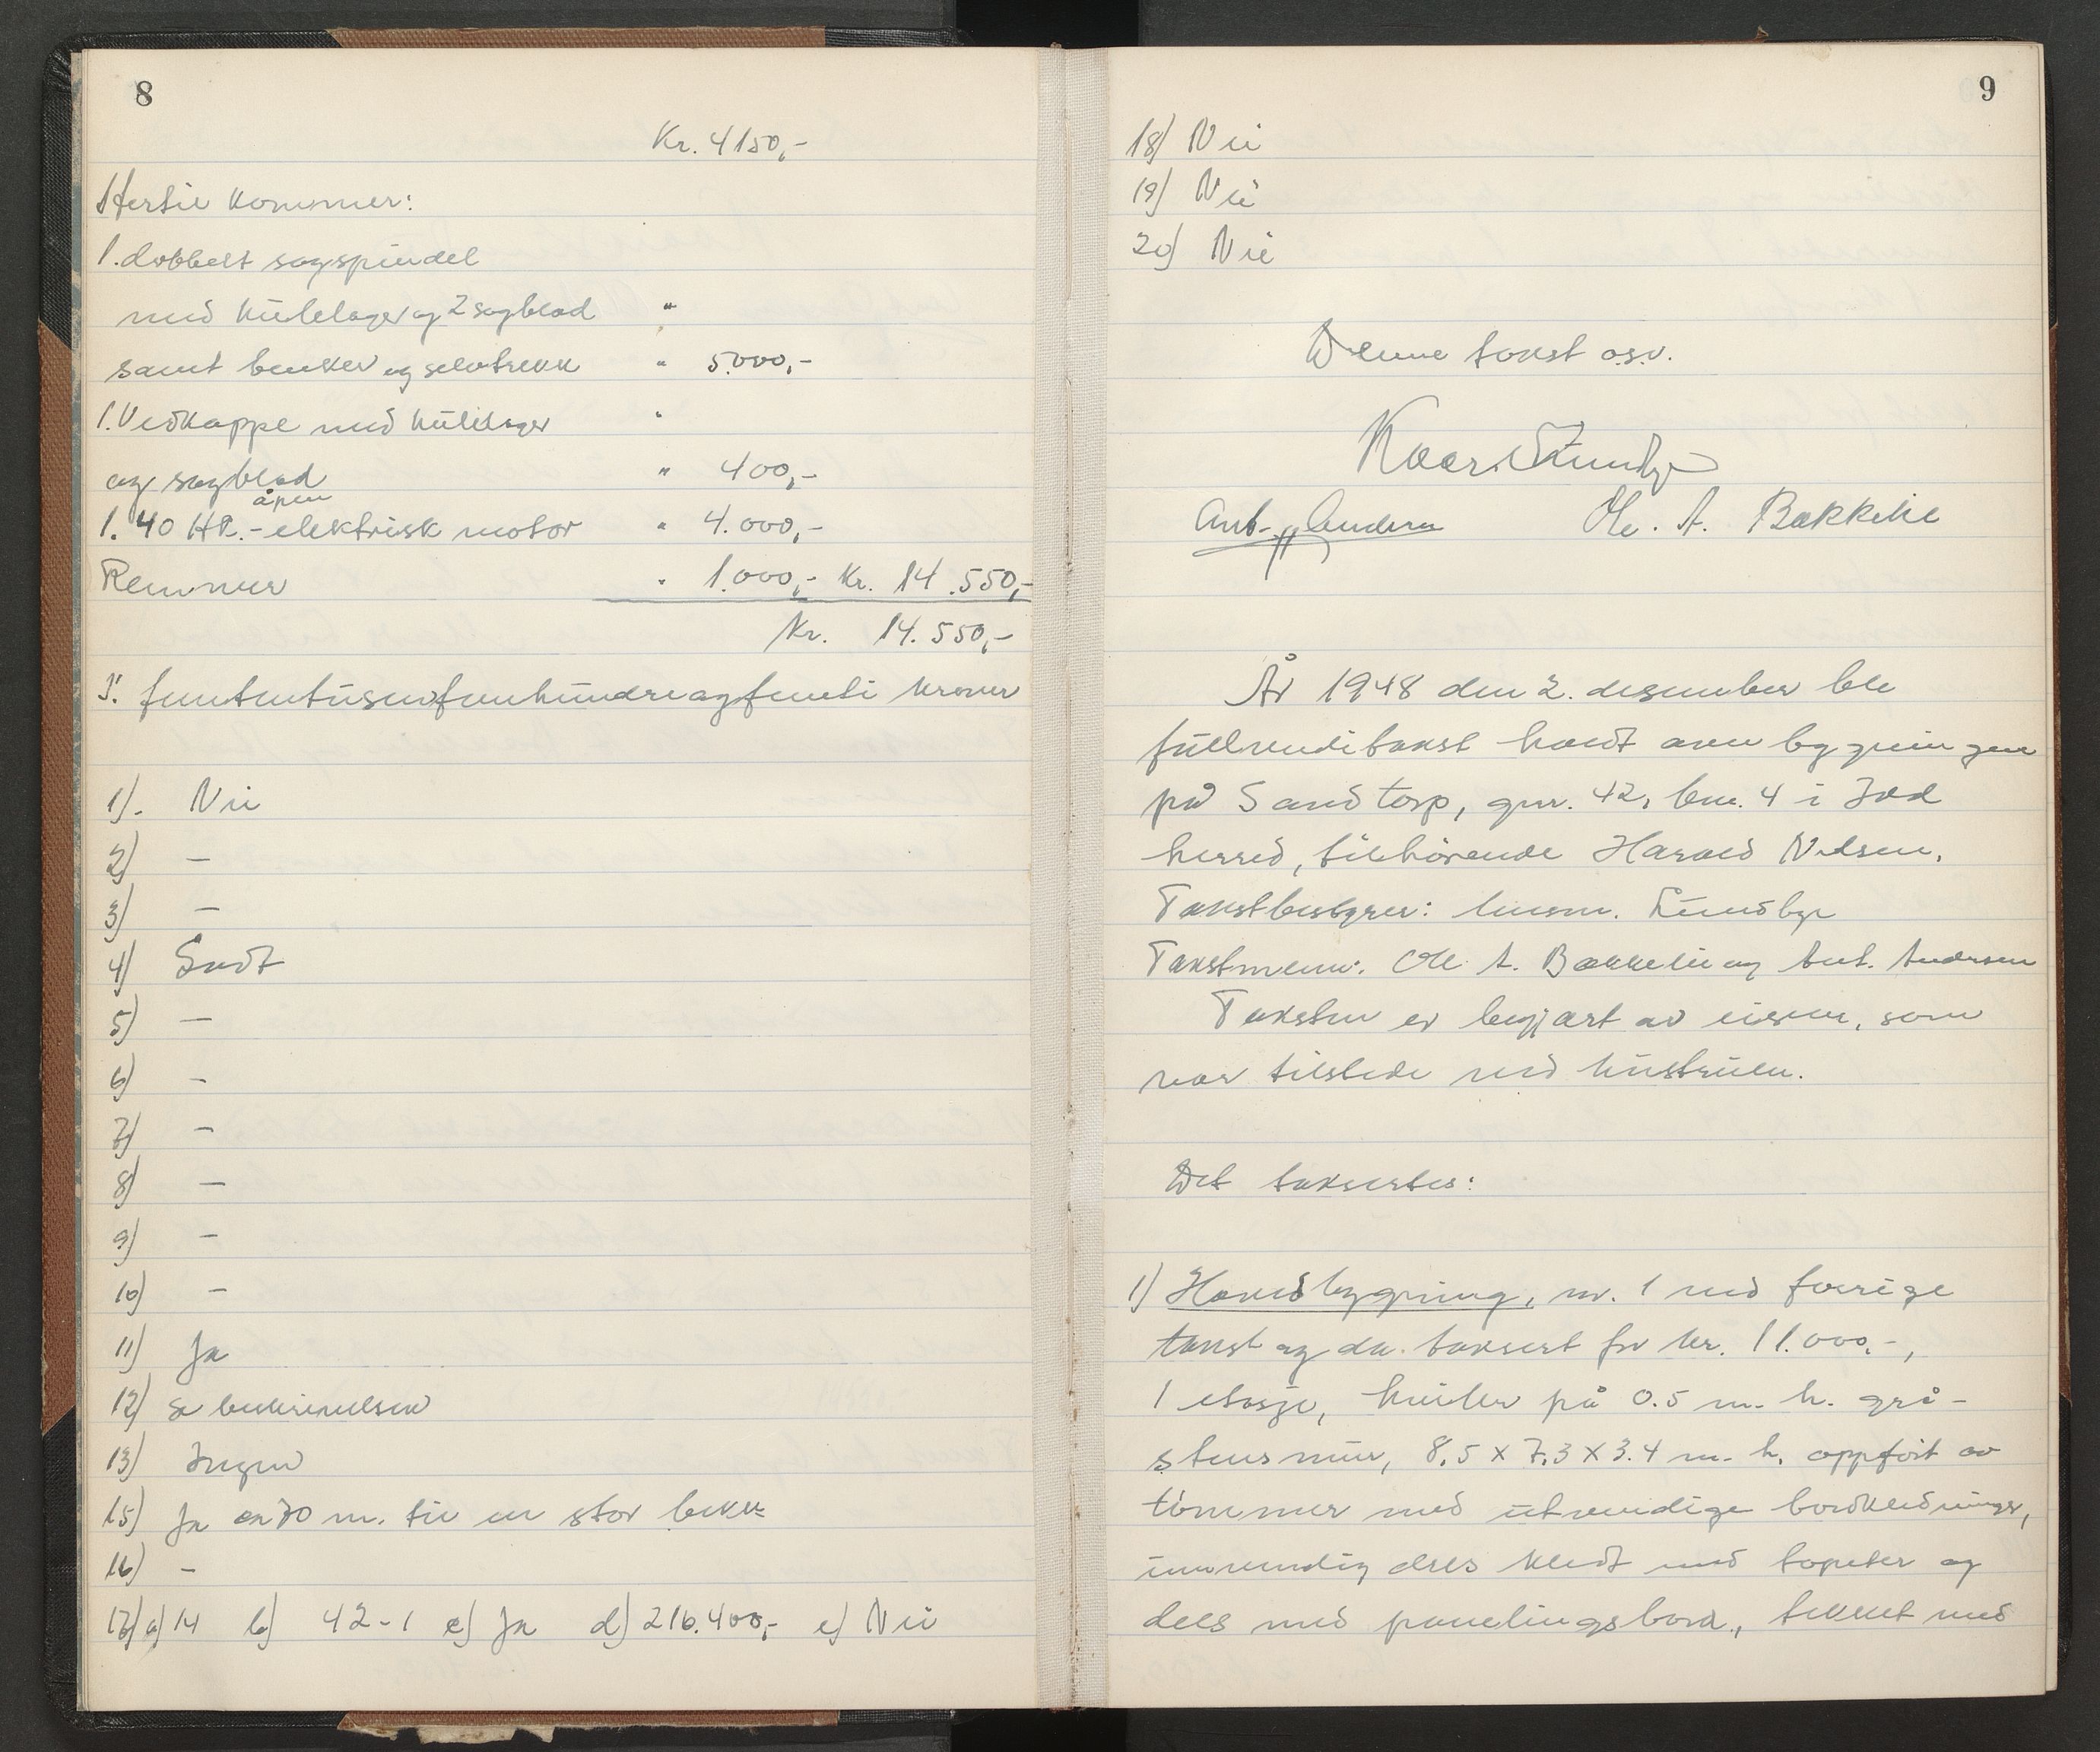 8
Kr. 4150,-
Hertil kommer:
1. dobbelt sagspindel
med kulelager og 2 sagblad "
samt benker og selvtrekk " 5.000,-
1. Vedkappe med kulelager "
og sagblad " 400,-
åpen
1. 40 HK.- elektrisk motor " 4.000,-
Remmer " 1.000,- Kr. 14.550,-
Kr. 14.550,-
femhundreogfemti kroner
1). Nei
2) —
3) —
4) Godt
5) —
6) -
7) -
8) —
9) -
10) -
11) Ja
12) Se beskrivelsen
13) Ingen
15) Ja ca 70 m. til en stor bekk
16) -
17) a) 14 b) 42-1 c) Ja d) 216.400,- e) Nei
9
18) Nei
19) Nei
20) Nei
Denne takst osv.
Kaare Lundby
Ant. Andersen Ole A. Bakkelie
År 1948 den 2. desember ble
fullverditakst holdt over bygningen
på Sandtorp, gnr. 42, bnr. 4 i Idd
herred, tilhørende Harald Nilsen.
Takstbestyrer: lensm. Lundby
Takstmenn: Ole A. Bakkelie og Ant. Andersen
Taksten er begjært av eieren, som
var tilstede med hustruen.
Det takseertes:
1) Hovedbygning, nr. 1 ved forrige
takst og da taksert for kr. 11.000,-,
1 etasje, hviler på 0.5 m. h. grå-
stensmur, 8.5 x 7.3 x 3.4 m. h. oppført av
tømmer med utvendige bordkledninger,
innvendig dels kledt med tapeter og
dels med panelingsbord, tekket med